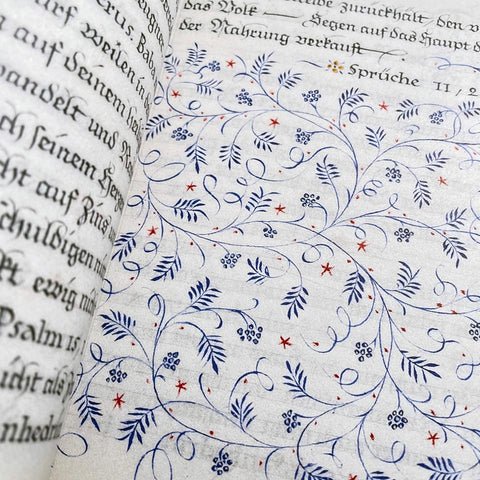 rus. Bab
darf weilen in
auf deinem
andelt und
seinem
auf Zins
chuldigen
ewig
Psalm 15
icht als
nhedri
zurückhält den
das Volk — Segen auf das Haupt d
der Nahrung verkauft —
Sprüche 11/2